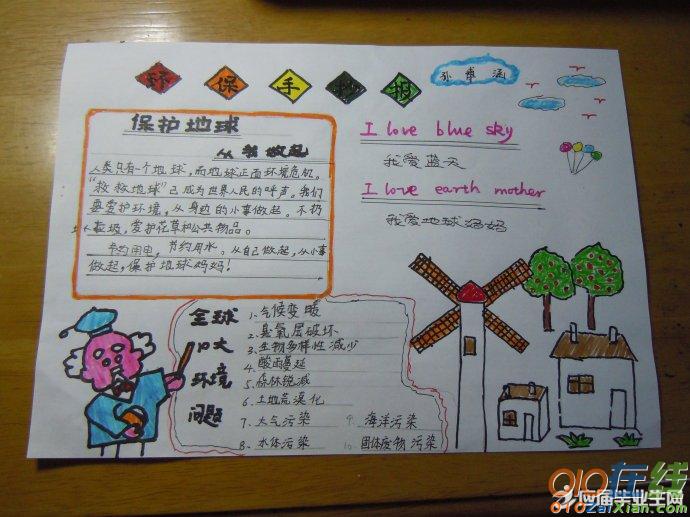 环保手抄报
孙卓涵
保护地球
从我做起
人类只有一个地球，而地球正面环境危机。
“救救地球”已成为世界人民的呼声。我们
要爱护环境，从身边的小事做起。不扔
垃圾，爱护花草和公共物品。
节约用电，节约用水。从自己做起，从小事
做起，保护地球妈妈！
I love blue sky
我爱蓝天
I love earth mother
我爱地球妈妈
全球
十大
环境
问题
1. 气候变暖
2. 臭氧层破坏
3. 生物多样性减少
4. 酸雨蔓延
5. 森林锐减
6. 土地荒漠化
7. 大气污染
8. 水体污染
9. 海洋污染
10. 固体废物污染
010在线
应届毕业生网
010zaixian.com